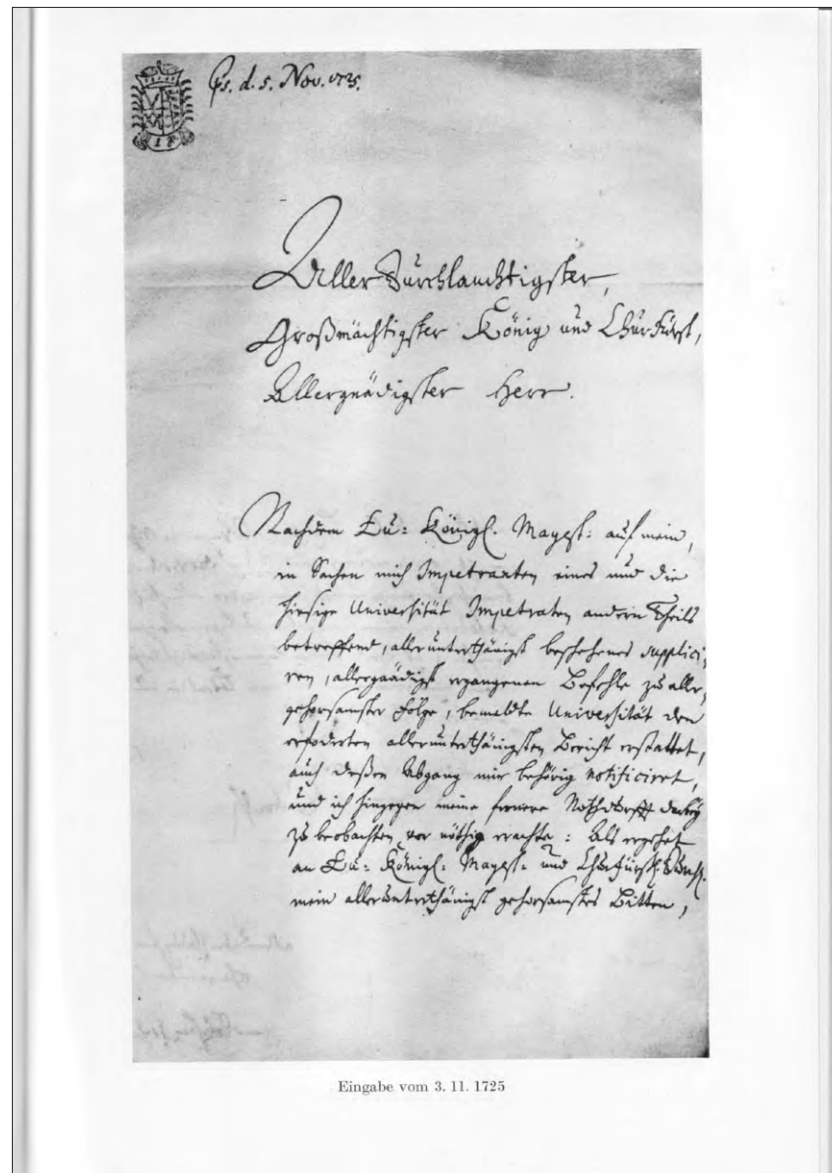 Ps. d. 5. Nov. 1725.
AllerDurchlauchtigster,
Großmächtigster König und ChurFürst,
Allergnädigster Herr.
Nachdem Eu: Königl. Mayest: auf mein,
in Sachen mich Impetranten eines und die
hiesige Universität Impetraten andern Theils
betreffend, allerunterthänigst beschehenes supplici-
ren, allergnädigst ergangenen Befehle zu aller-
gehorsamster Folge, bemeldte Universität den
erfoderten allerunterthänigsten Bericht erstattet,
auch deßen Abgang mir behörig notificiret,
und ich hingegen meine fernere Nothdurfft dabey
zu beobachten vor nöthig erachte: Als ergehet
an Eu: Königl: Mayest: und Churfürstl. Durchl.
mein allerunterthänigst gehorsamstes Bitten,
Eingabe vom 3. 11. 1725